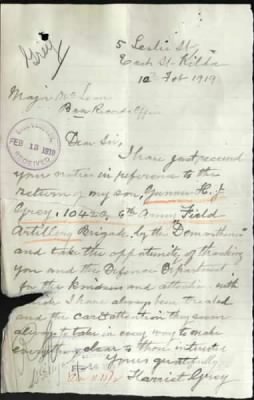 Grey
5 Leslie St.
East St. Kilda
12 Feb 1919
Major McLean
Base Records Office
FEB 13 1919
RECEIVED
Dear Sir,
I have just received
your notice in reference to the
return of my son, Gunner H. J.
Grey, 10423, 6th Army Field
Artillery Brigade, by the "Demosthenes"
and take the opportunity of thanking
you and the Defence Department
for the kindness and attention with
which I have always been treated
and the care & attention they
always to take in every way to make
everything clear to those interested
Yours gratefully
Harriet Grey